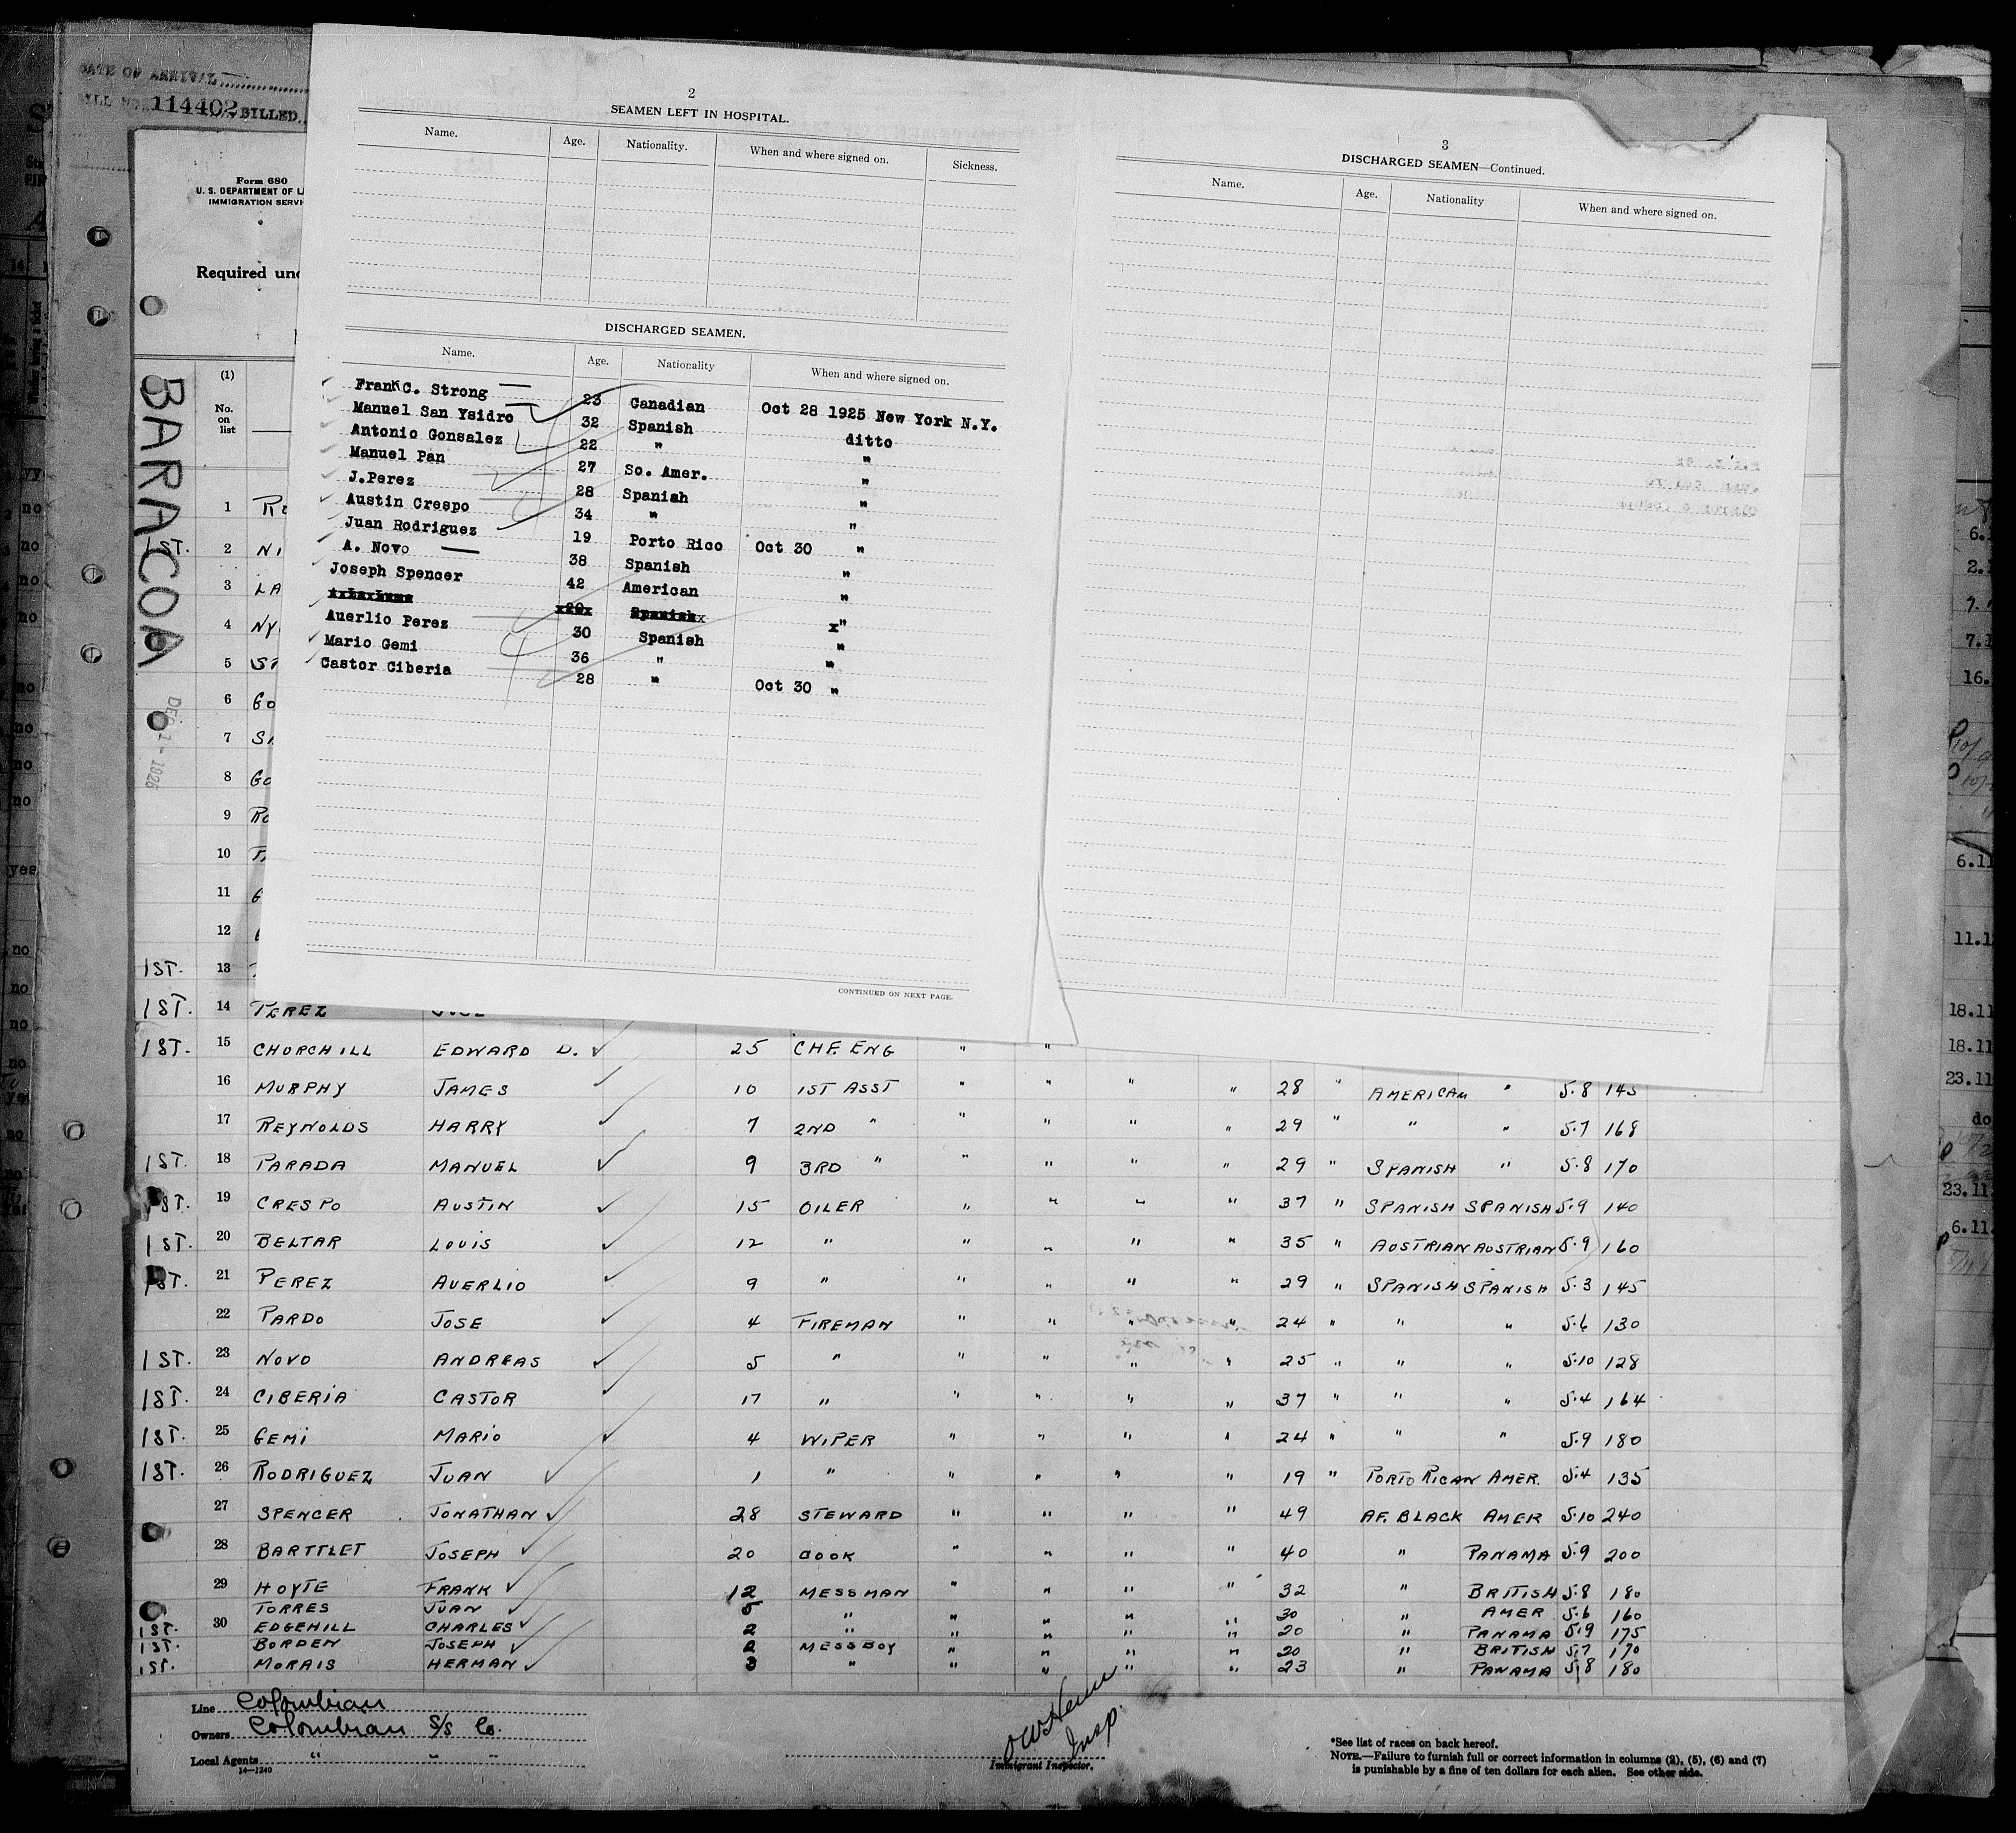 DATE OF ARRIVAL
114402 BILLED
Form 680
U. S. DEPARTMENT OF
IMMIGRATION
Required
BARACOA
DEC 1 - 1925
(1)
No. on list
2
SEAMEN LEFT IN HOSPITAL.
Name. Age. Nationality. When and where signed on. Sickness.
DISCHARGED SEAMEN.
Name. Age. Nationality When and where signed on.
Frank C. Strong 23 Canadian Oct 28 1925 New York N.Y.
Manuel San Ysidro 32 Spanish ditto
Antonio Gonsalez 22 " "
Manuel Pan 27 So. Amer. "
J.Perez 28 Spanish "
Austin Crespo 34 " "
Juan Rodriguez 19 Porto Rico Oct 30 "
A. Novo 38 Spanish "
Joseph Spencer 42 American "
x20x Spanishx x"
Auerlio Perez 30 Spanish "
Mario Gemi 36 " "
Castor Ciberia 28 " Oct 30 "
CONTINUED ON NEXT PAGE.
3
DISCHARGED SEAMEN—Continued.
Name. Age. Nationality When and where signed on.
1
1ST. 2 NI
3 LA
4 NY
5
6 GO
7
8 GO
9 RO
10
11
12
1ST. 13
1ST. 14 PEREZ
1ST. 15 CHURCHILL EDWARD D. 25 CHF. ENG " "
16 MURPHY JAMES 10 1ST ASST " " " " 28 " AMERICAN " 5.8 145
17 REYNOLDS HARRY 7 2ND " " " " " 29 " " " 5.7 168
1ST. 18 PARADA MANUEL 9 3RD " " " " " 29 " SPANISH " 5.8 170
1ST. 19 CRESPO AUSTIN 15 OILER " " " " 37 " SPANISH SPANISH 5.9 140
1ST. 20 BELTAR LOUIS 12 " " " " " 35 " AUSTRIAN AUSTRIAN 5.9 160
1ST. 21 PEREZ AUERLIO 9 " " " " " 29 " SPANISH SPANISH 5.3 145
22 PARDO JOSE 4 FIREMAN " " " " 24 " " " 5.6 130
1ST. 23 NOVO ANDREAS 5 " " " " " 25 " " " 5.10 128
1ST. 24 CIBERIA CASTOR 17 " " " " " 37 " " " 5.4 164
1ST. 25 GEMI MARIO 4 WIPER " " " " 24 " " " 5.9 180
1ST. 26 RODRIGUEZ JUAN 1 " " " " " 19 " PORTO RICAN AMER. 5.4 135
27 SPENCER JONATHAN 28 STEWARD " " " " 49 AF. BLACK AMER 5.10 240
28 BARTTLET JOSEPH 20 COOK " " " " 40 " PANAMA 5.9 200
29 HOYTE FRANK 12 MESSMAN " " " " 32 " BRITISH 5.8 180
TORRES JUAN 5 " " " " " 30 " AMER 5.6 160
1ST. 30 EDGEHILL CHARLES 2 " " " " " 20 " PANAMA 5.9 175
1ST. BORDEN JOSEPH 2 MESSBOY " " " " 20 " BRITISH 5.7 170
1ST. MORAIS HERMAN 3 " " " " " 23 " PANAMA 5.8 180
Line Colombian
Owners Colombian S/S Co.
Local Agents " " "
14—1240
Insp.
Immigrant Inspector.
*See list of races on back hereof.
NOTE.—Failure to furnish full or correct information in columns (2), (5), (6) and (7)
is punishable by a fine of ten dollars for each alien. See other side.